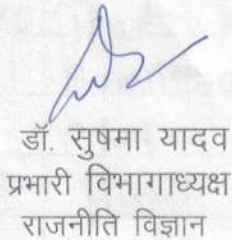 डॉ. सुषमा यादव
प्रभारी विभागाध्यक्ष
राजनीति विज्ञान